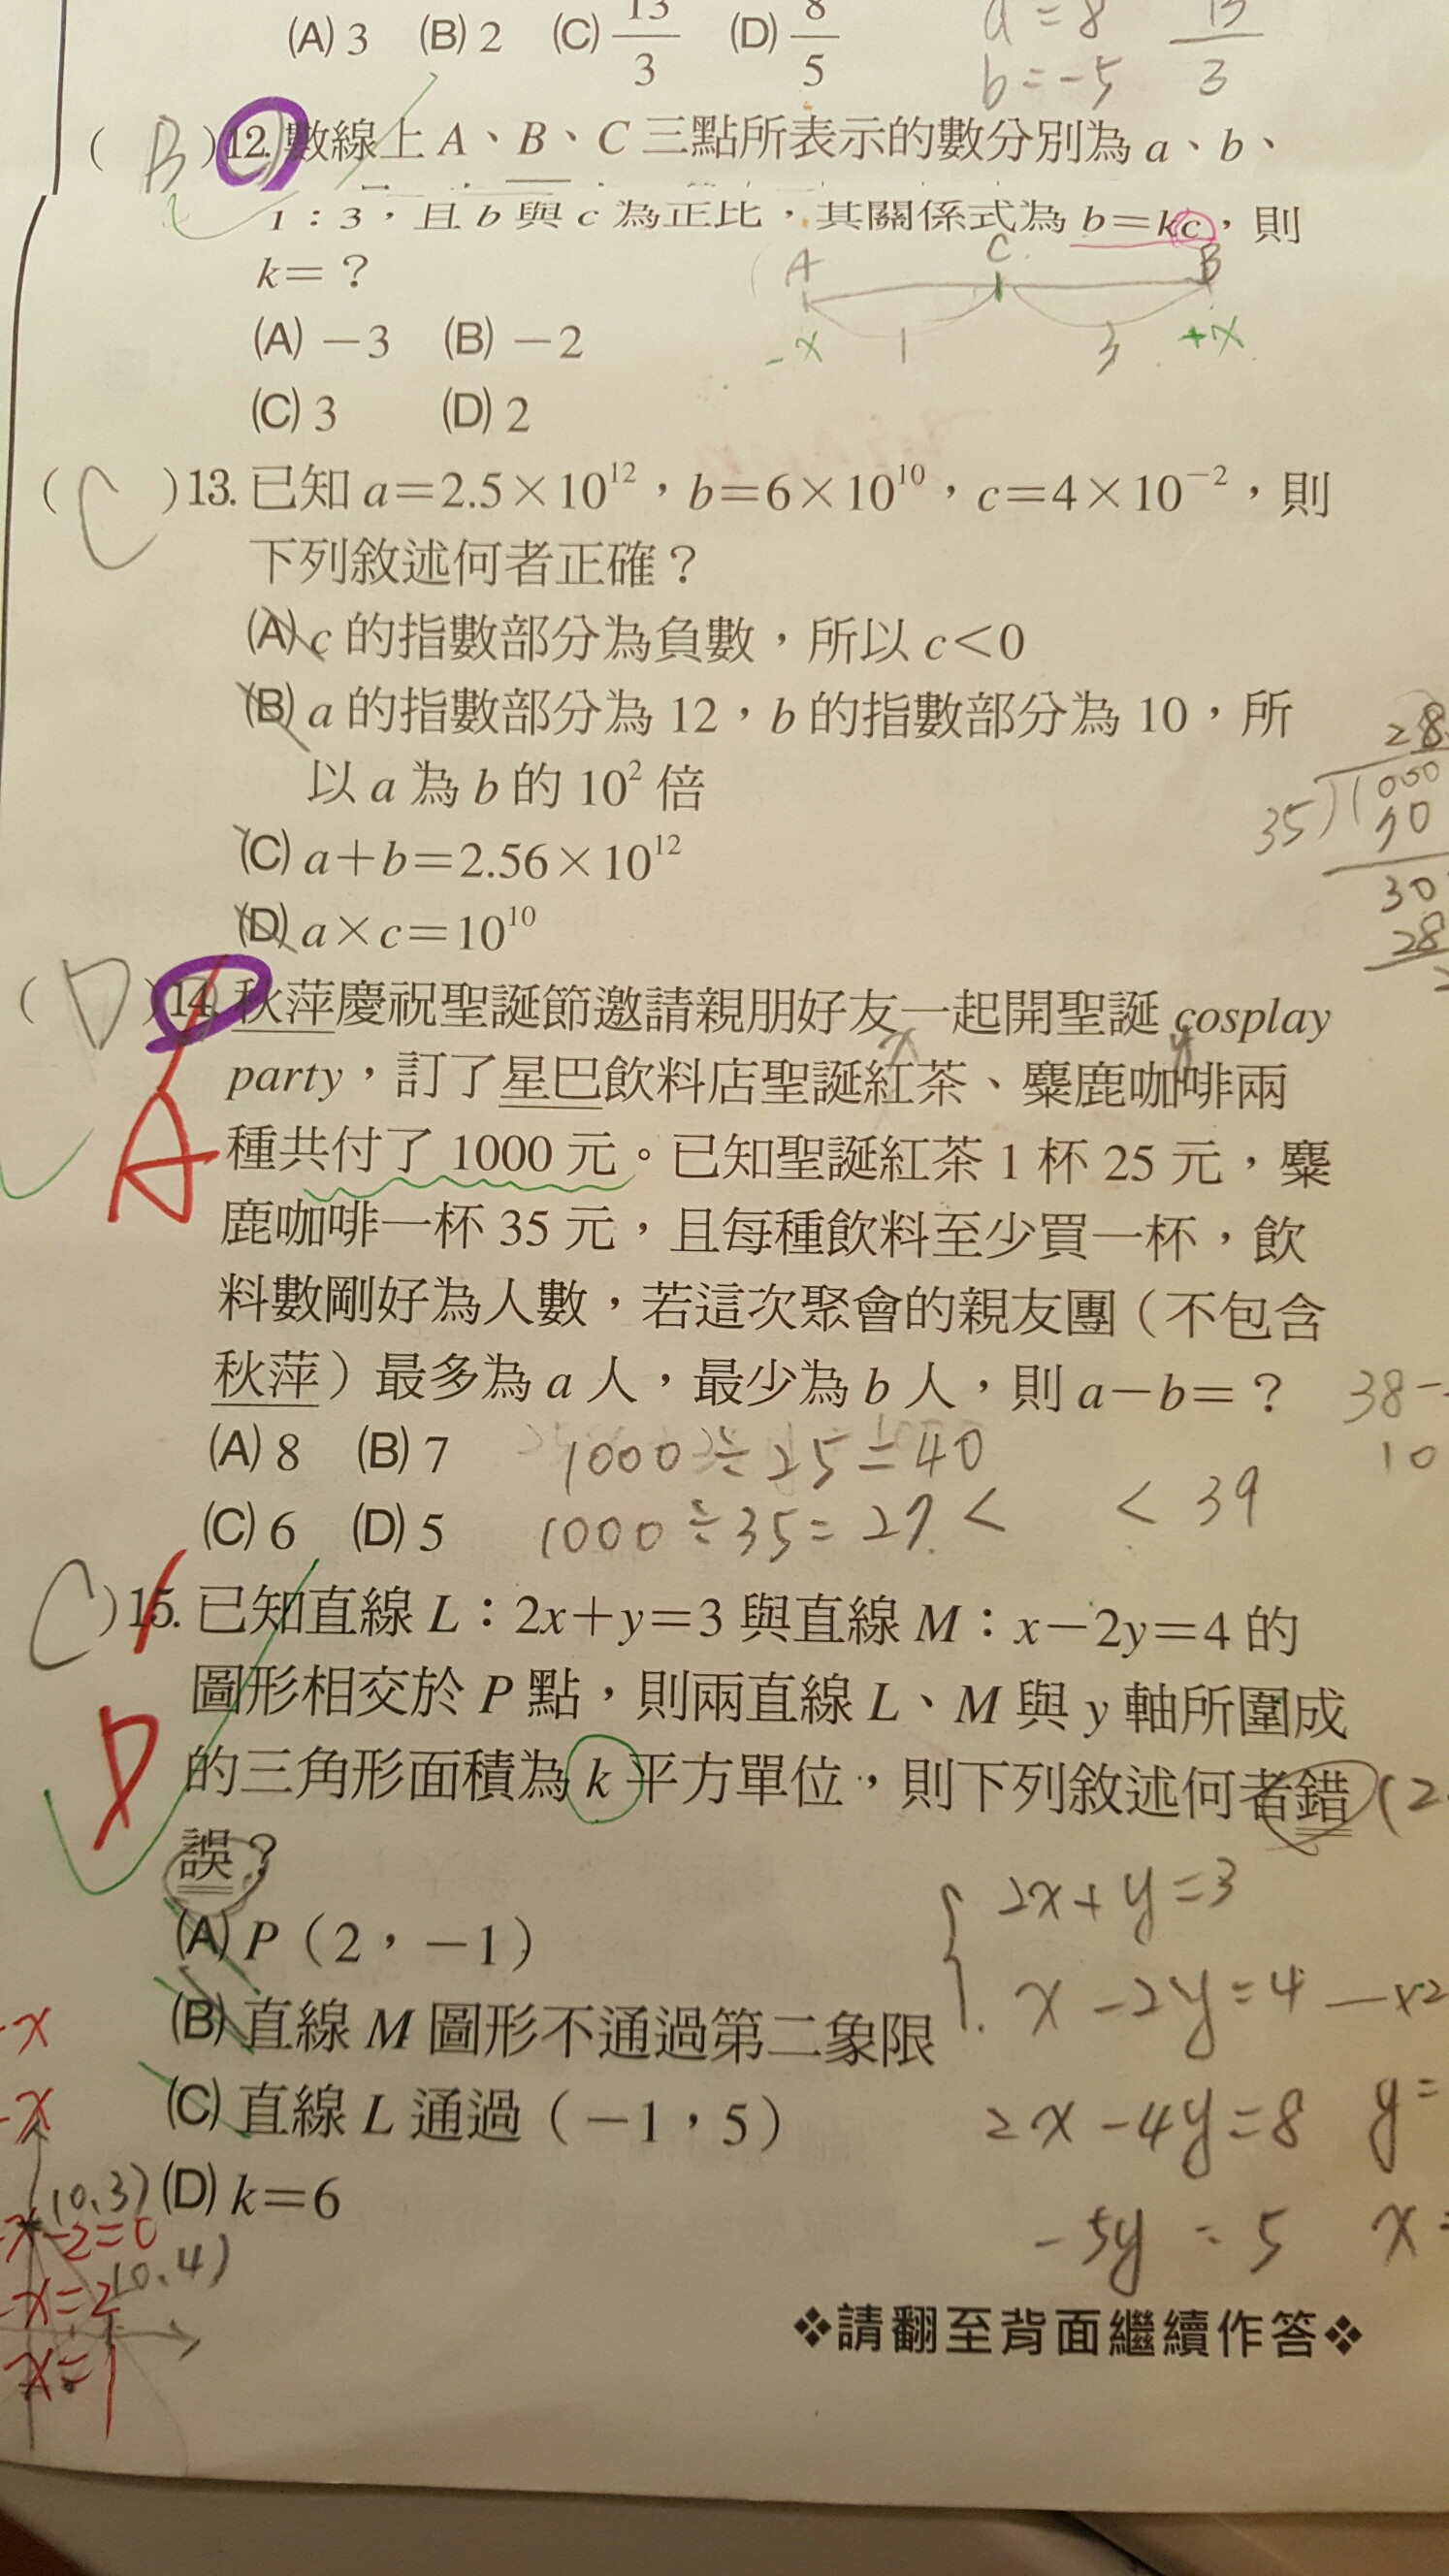 (A) 3 (B) 2 (C) 13/3 (D) 8/5
a = 8
b = -5
13/3
( B )12. 數線上 A、B、C 三點所表示的數分別為 a、b、
1：3，且 b 與 c 為正比，其關係式為 b＝kc，則
k＝？
A C B
-x 1 3 +x
(A) －3 (B) －2
(C) 3 (D) 2
( C )13. 已知 a＝2.5×10¹²，b＝6×10¹⁰，c＝4×10⁻²，則
下列敘述何者正確？
(A) c 的指數部分為負數，所以 c＜0
(B) a 的指數部分為 12，b 的指數部分為 10，所
以 a 為 b 的 10² 倍
(C) a＋b＝2.56×10¹²
(D) a×c＝10¹⁰
28
35)1000
70
30
28
( D )14. 秋萍慶祝聖誕節邀請親朋好友一起開聖誕 cosplay
A
x y
party，訂了星巴飲料店聖誕紅茶、麋鹿咖啡兩
種共付了 1000 元。已知聖誕紅茶 1 杯 25 元，麋
鹿咖啡一杯 35 元，且每種飲料至少買一杯，飲
料數剛好為人數，若這次聚會的親友團（不包含
秋萍）最多為 a 人，最少為 b 人，則 a－b＝？
38-
10
(A) 8 (B) 7
1000÷25=40
(C) 6 (D) 5
1000÷35=27. < < 39
C )15. 已知直線 L：2x＋y＝3 與直線 M：x－2y＝4 的
圖形相交於 P 點，則兩直線 L、M 與 y 軸所圍成
D
的三角形面積為 k 平方單位，則下列敘述何者錯
(2
誤？
2x+y=3
(A) P（2，－1）
x-2y=4 —x2
(B) 直線 M 圖形不通過第二象限
(C) 直線 L 通過（－1，5）
2x-4y=8 y=
(D) k＝6
-5y=5 x=
-x
-x
(0,3)
-x-2=0
(0,4)
-x=2
x=1
❖請翻至背面繼續作答❖